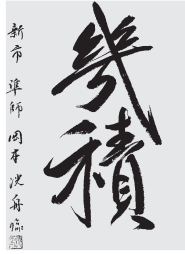 幾積
新市 準師 岡本洸舟臨